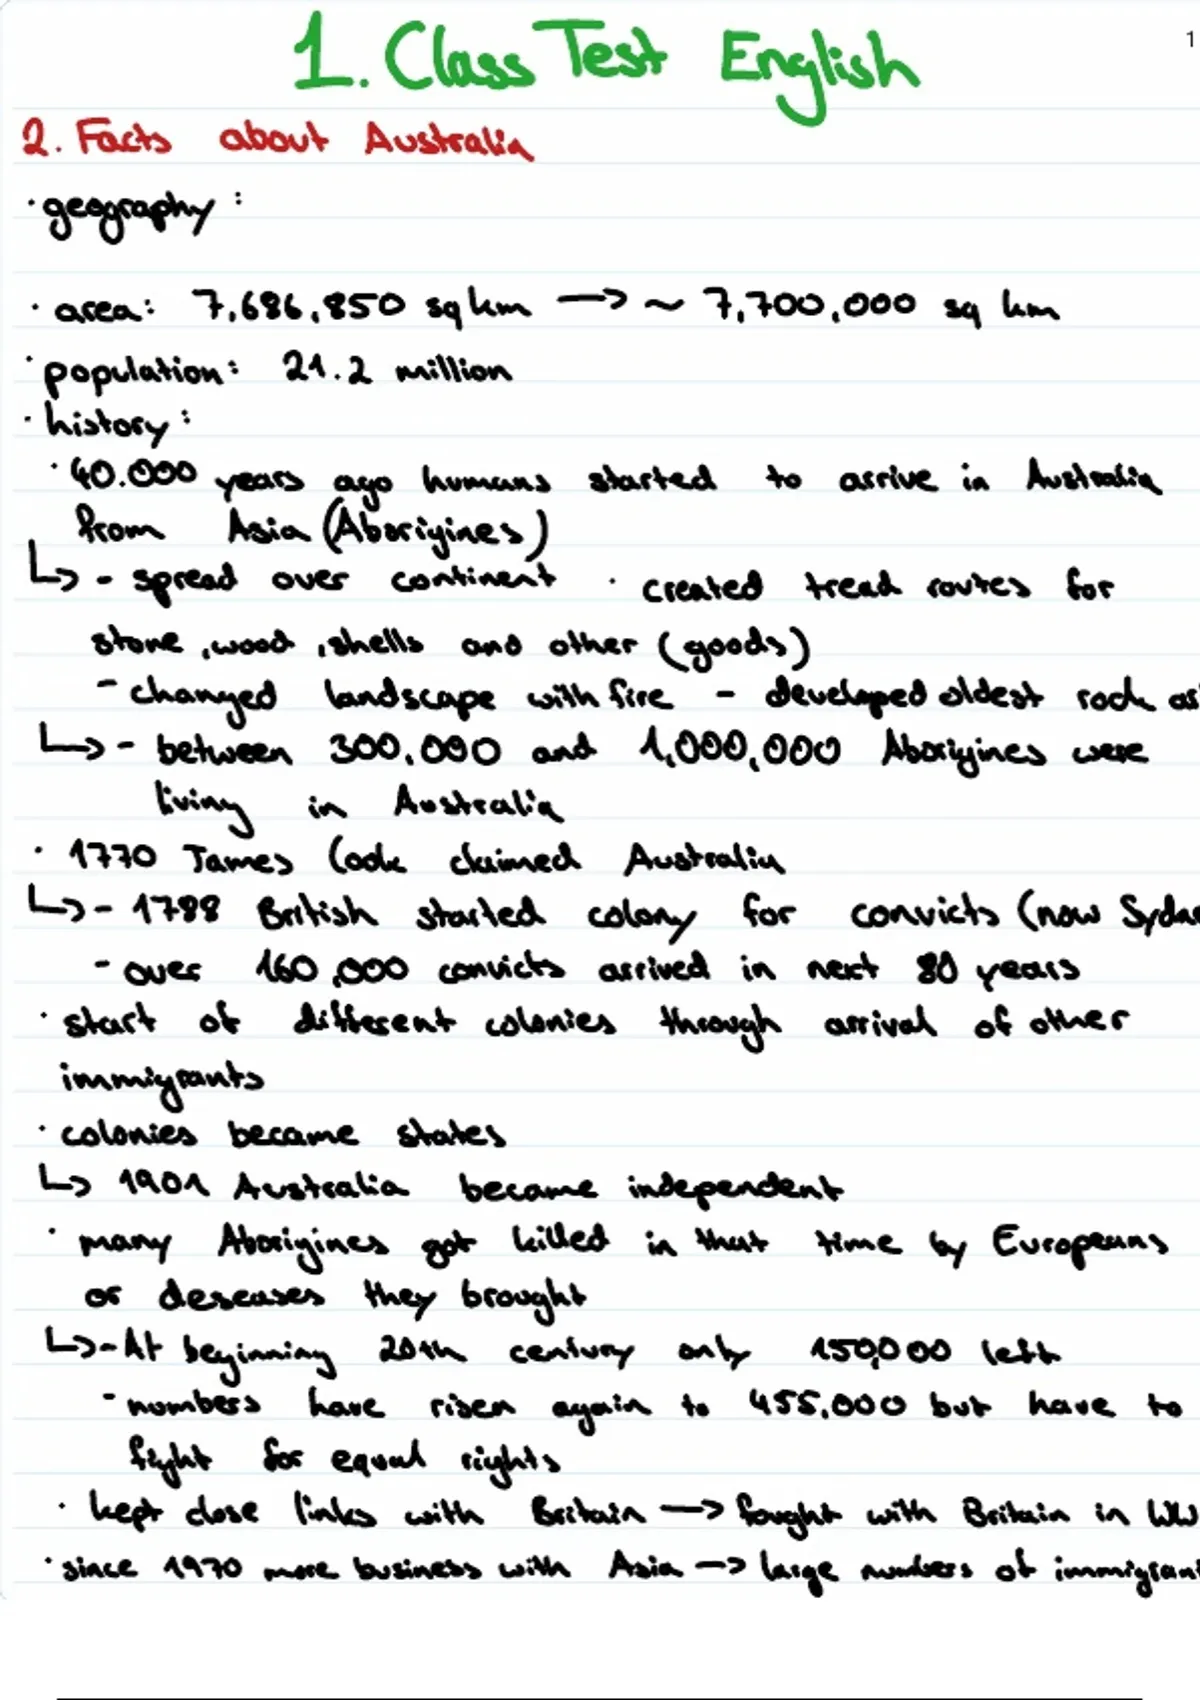 1
1. Class Test English
2. Facts about Australia
· geography :
· area: 7,686,850 sq km —> ~ 7,700,000 sq km
· population: 21.2 million
· history :
· 40.000 years ago humans started to arrive in Australia
from Asia (Aborigines)
↳ - spread over continent · created tread routes for
stone, wood, shells and other (goods)
- changed landscape with fire - developed oldest rock
↳ - between 300,000 and 1,000,000 Aborigines were
living in Australia
· 1770 James Cook claimed Australia
↳ - 1788 British started colony for convicts (now Sydne
- over 160,000 convicts arrived in next 80 years
· start of different colonies through arrival of other
immigrants
· colonies became states
↳ 1901 Australia became independent
· many Aborigines got killed in that time by Europeans
or deseases they brought
↳ - At beginning 20th century only 150,000 left
- numbers have risen again to 455,000 but have to
fight for equal rights
· kept close links with Britain —> fought with Britain in WW
· since 1970 more business with Asia —> large numbers of immigran